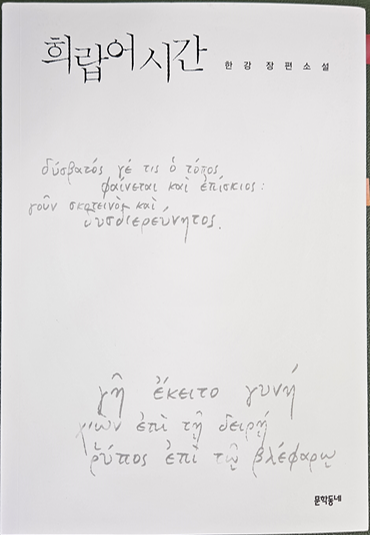 희랍어 시간
한 강 장 편 소 설
δύσβατός γέ τις ὁ τόπος
φαίνεται καὶ ἐπίσκιος·
γοῦν σκοτεινὸς καὶ
δυσδιερεύνητος.
γῆ ἔκειτο γυνή
χιὼν ἐπὶ τῇ δειρῇ
ῥύπος ἐπὶ τῷ βλέφαρῳ
문학동네